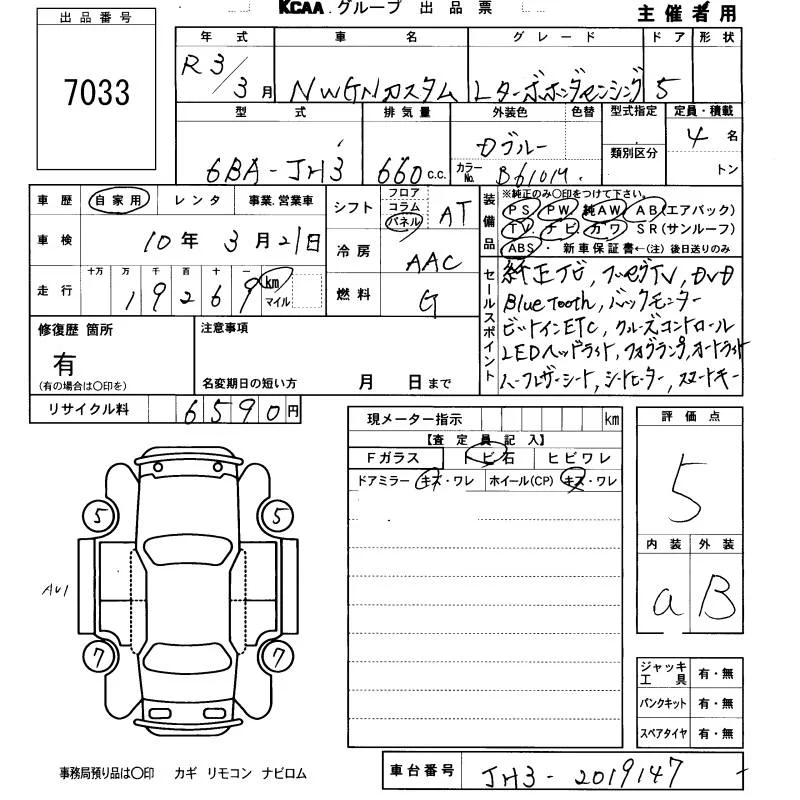 出品番号
KCAA グループ 出品票
主催者用
7033
年式 車名 グレード ドア 形状
R3/3月 NWGNカスタム Lターボホンダセンシング 5
型式 排気量 外装色 色替 型式指定 定員・積載
6BA-JH3 660 c.c. Dブルー カラーNo. B610M 類別区分 4名
トン
車歴 自家用 レンタ 事業.営業車
シフト フロア コラム パネル AT
装備品 ※純正のみ〇印をつけて下さい。
PS PW 純AW AB(エアバック)
TV. ナビ カワ SR(サンルーフ)
ABS・新車保証書←(注) 後日送りのみ
車検 10年 3月21日
冷房 AAC
走行 十万 万 千 百 十 一
19269 km マイル
燃料 G
セールスポイント
純正ナビ, フルセグTV, DVD
Bluetooth, バックモニター
ビルトインETC, クルーズコントロール
LEDヘッドライト, フォグランプ, オートライト
ハーフレザーシート, シートヒーター, スマートキー
修復歴 箇所
有
(有の場合は〇印を)
注意事項
名変期日の短い方 月 日まで
リサイクル料 6590円
現メーター指示 km
【査定員記入】
Fガラス トビ石 ヒビワレ
ドアミラー キズ・ワレ ホイール(CP) キズ・ワレ
評価点
5
内装 外装
a B
5 5
AU1
7 7
ジャッキ工具 有・無
パンクキット 有・無
スペアタイヤ 有・無
事務局預り品は〇印 カギ リモコン ナビロム
車台番号 JH3-2019147